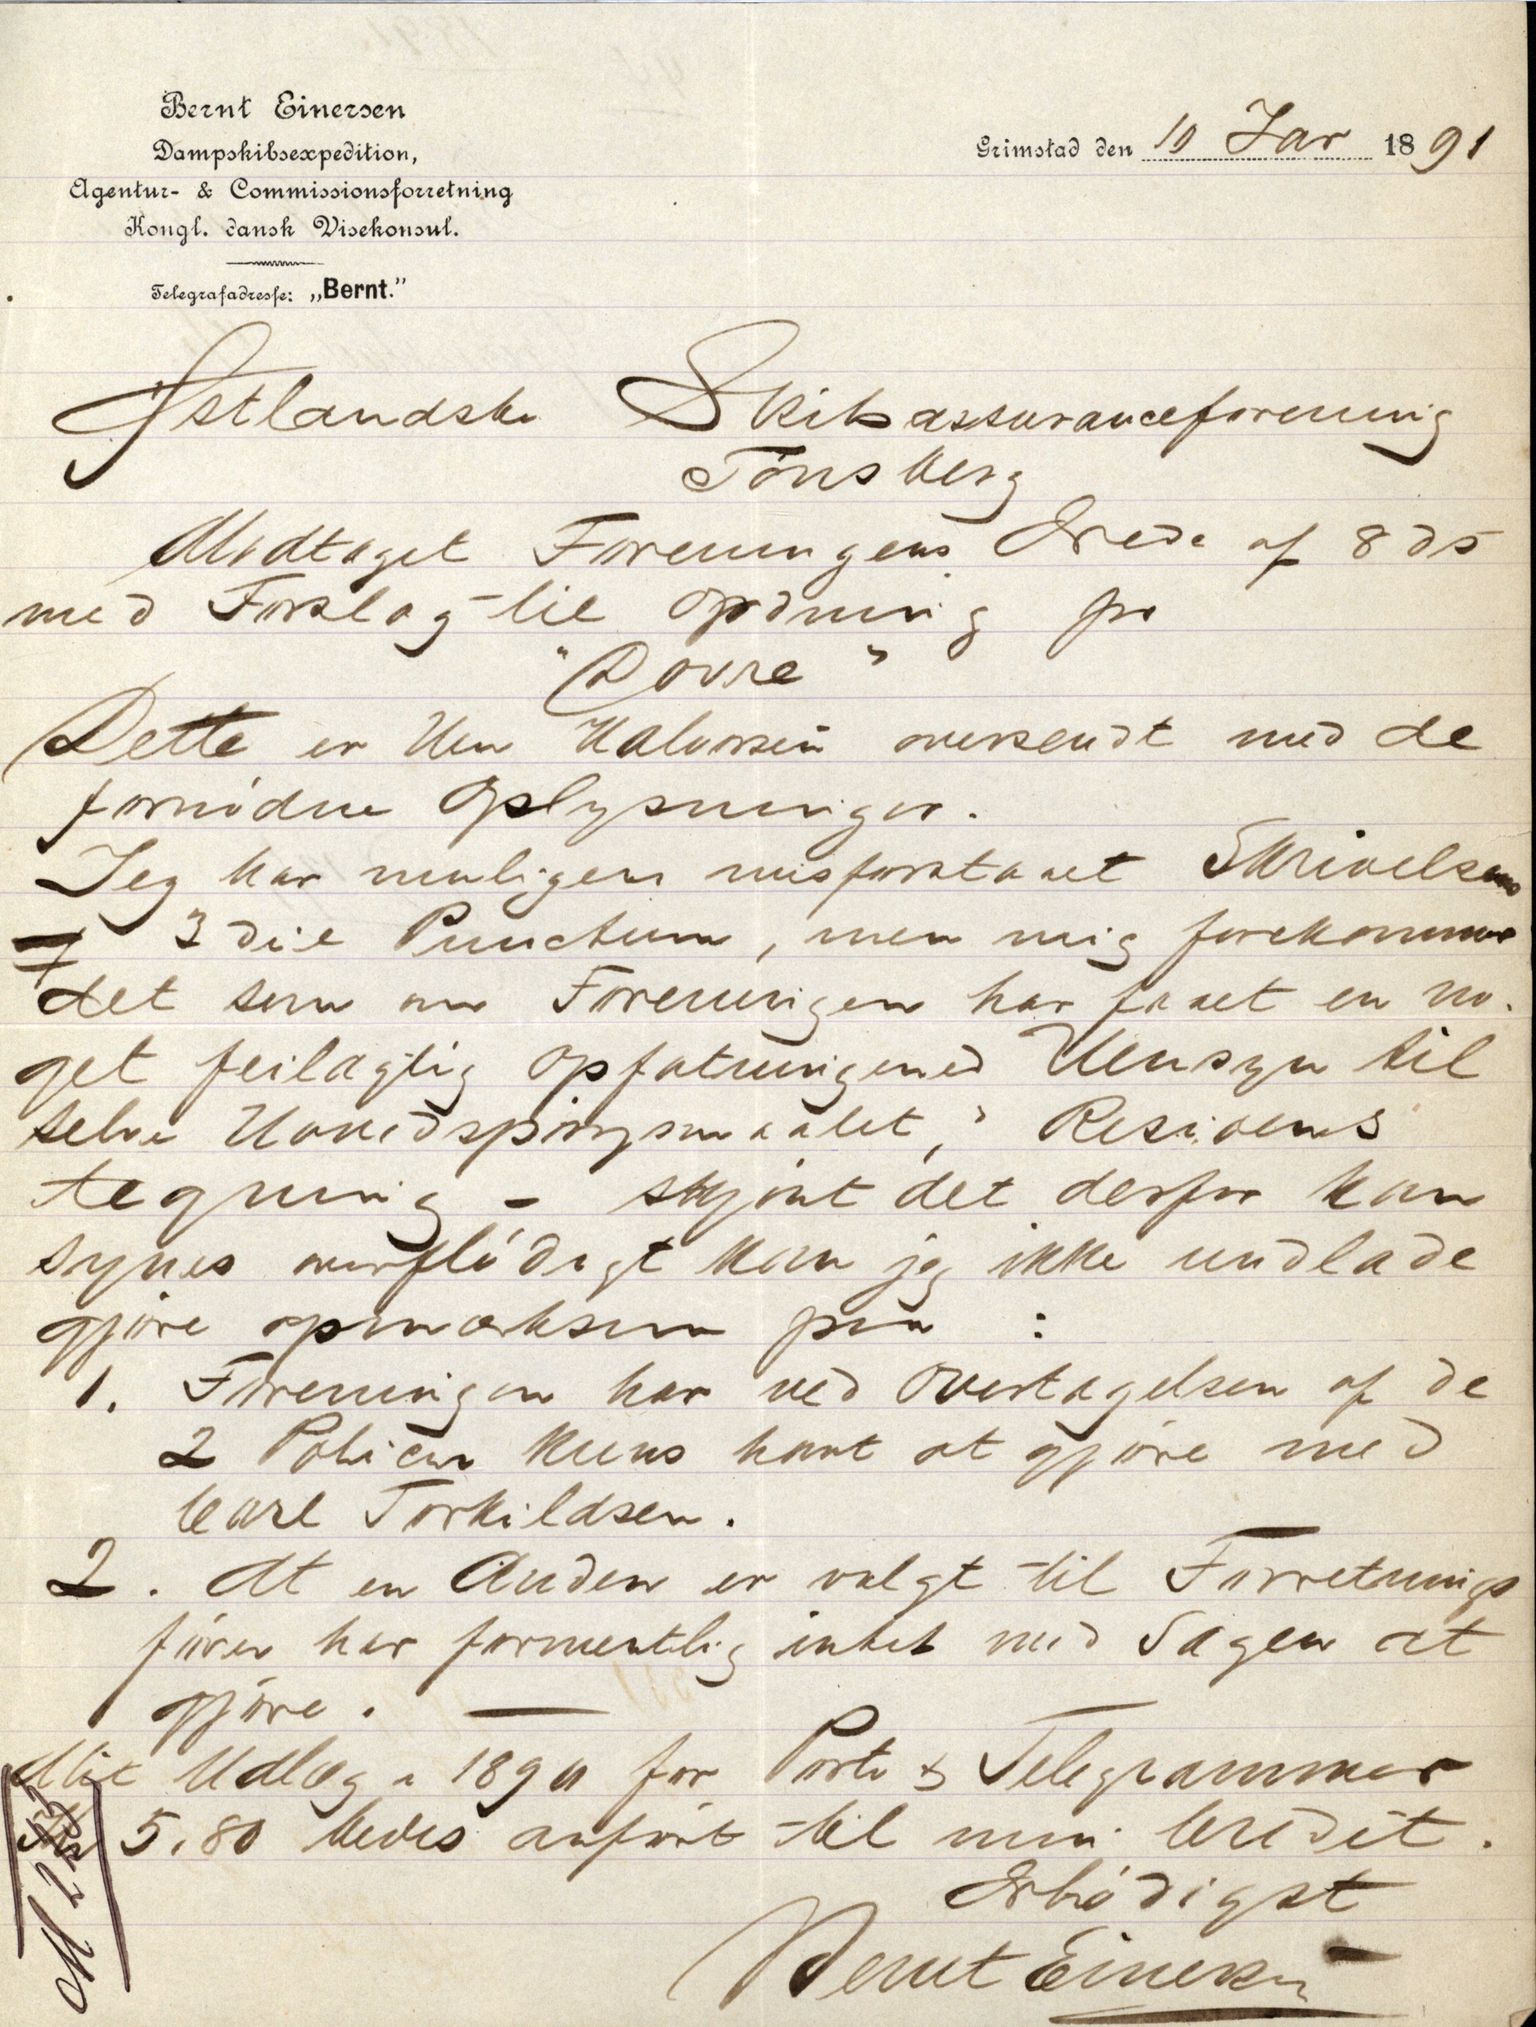 Bernt Einersen
Dampskibsexpedition,
Agentur- & Commissionsforretning
Kongl. dansk Visekonsul.
Telegrafadresse: „Bernt."
Grimstad den 10 Jar 1891
Østlandske Skibsassuranceforening
Tønsberg
Modtaget Foreningens Ærede af 8 ds
med Forslag til Opdning fra
"Dovre"
Dette er Hen Halvorsen oversendt med de
fornødne Oplysninger.
Jeg har muligens misforstaaet Skrivelsens
3die Punctum, men mig forekommer
det som om Foreningen har faaet en no-
get feilagtig Opfatning med Hensyn til
selve Hovedspørgsmaalet,
tegning – skjønt det derfor kan
synes overflødigt kan jeg ikke undlade
gjøre opmærksom paa :
1. Foreningen har ved Overtagelsen af de
2 Policer kuns havt at gjøre med
Carl Torkildsen.
2. At en Anden er valgt til Forretnings
fører har formentlig intet med Sagen at
gjøre. —
Mit Udlæg i 1890 for Porto & Telegrammer
Kr 5,80 bedes anført til min Credit.
Ærbødigst
Bernt Einersen